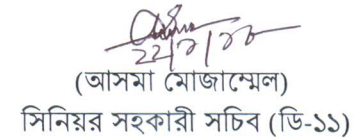 ২২/৭/১৮
(আসমা মোজাম্মেল)
সিনিয়র সহকারী সচিব (ডি-১১)